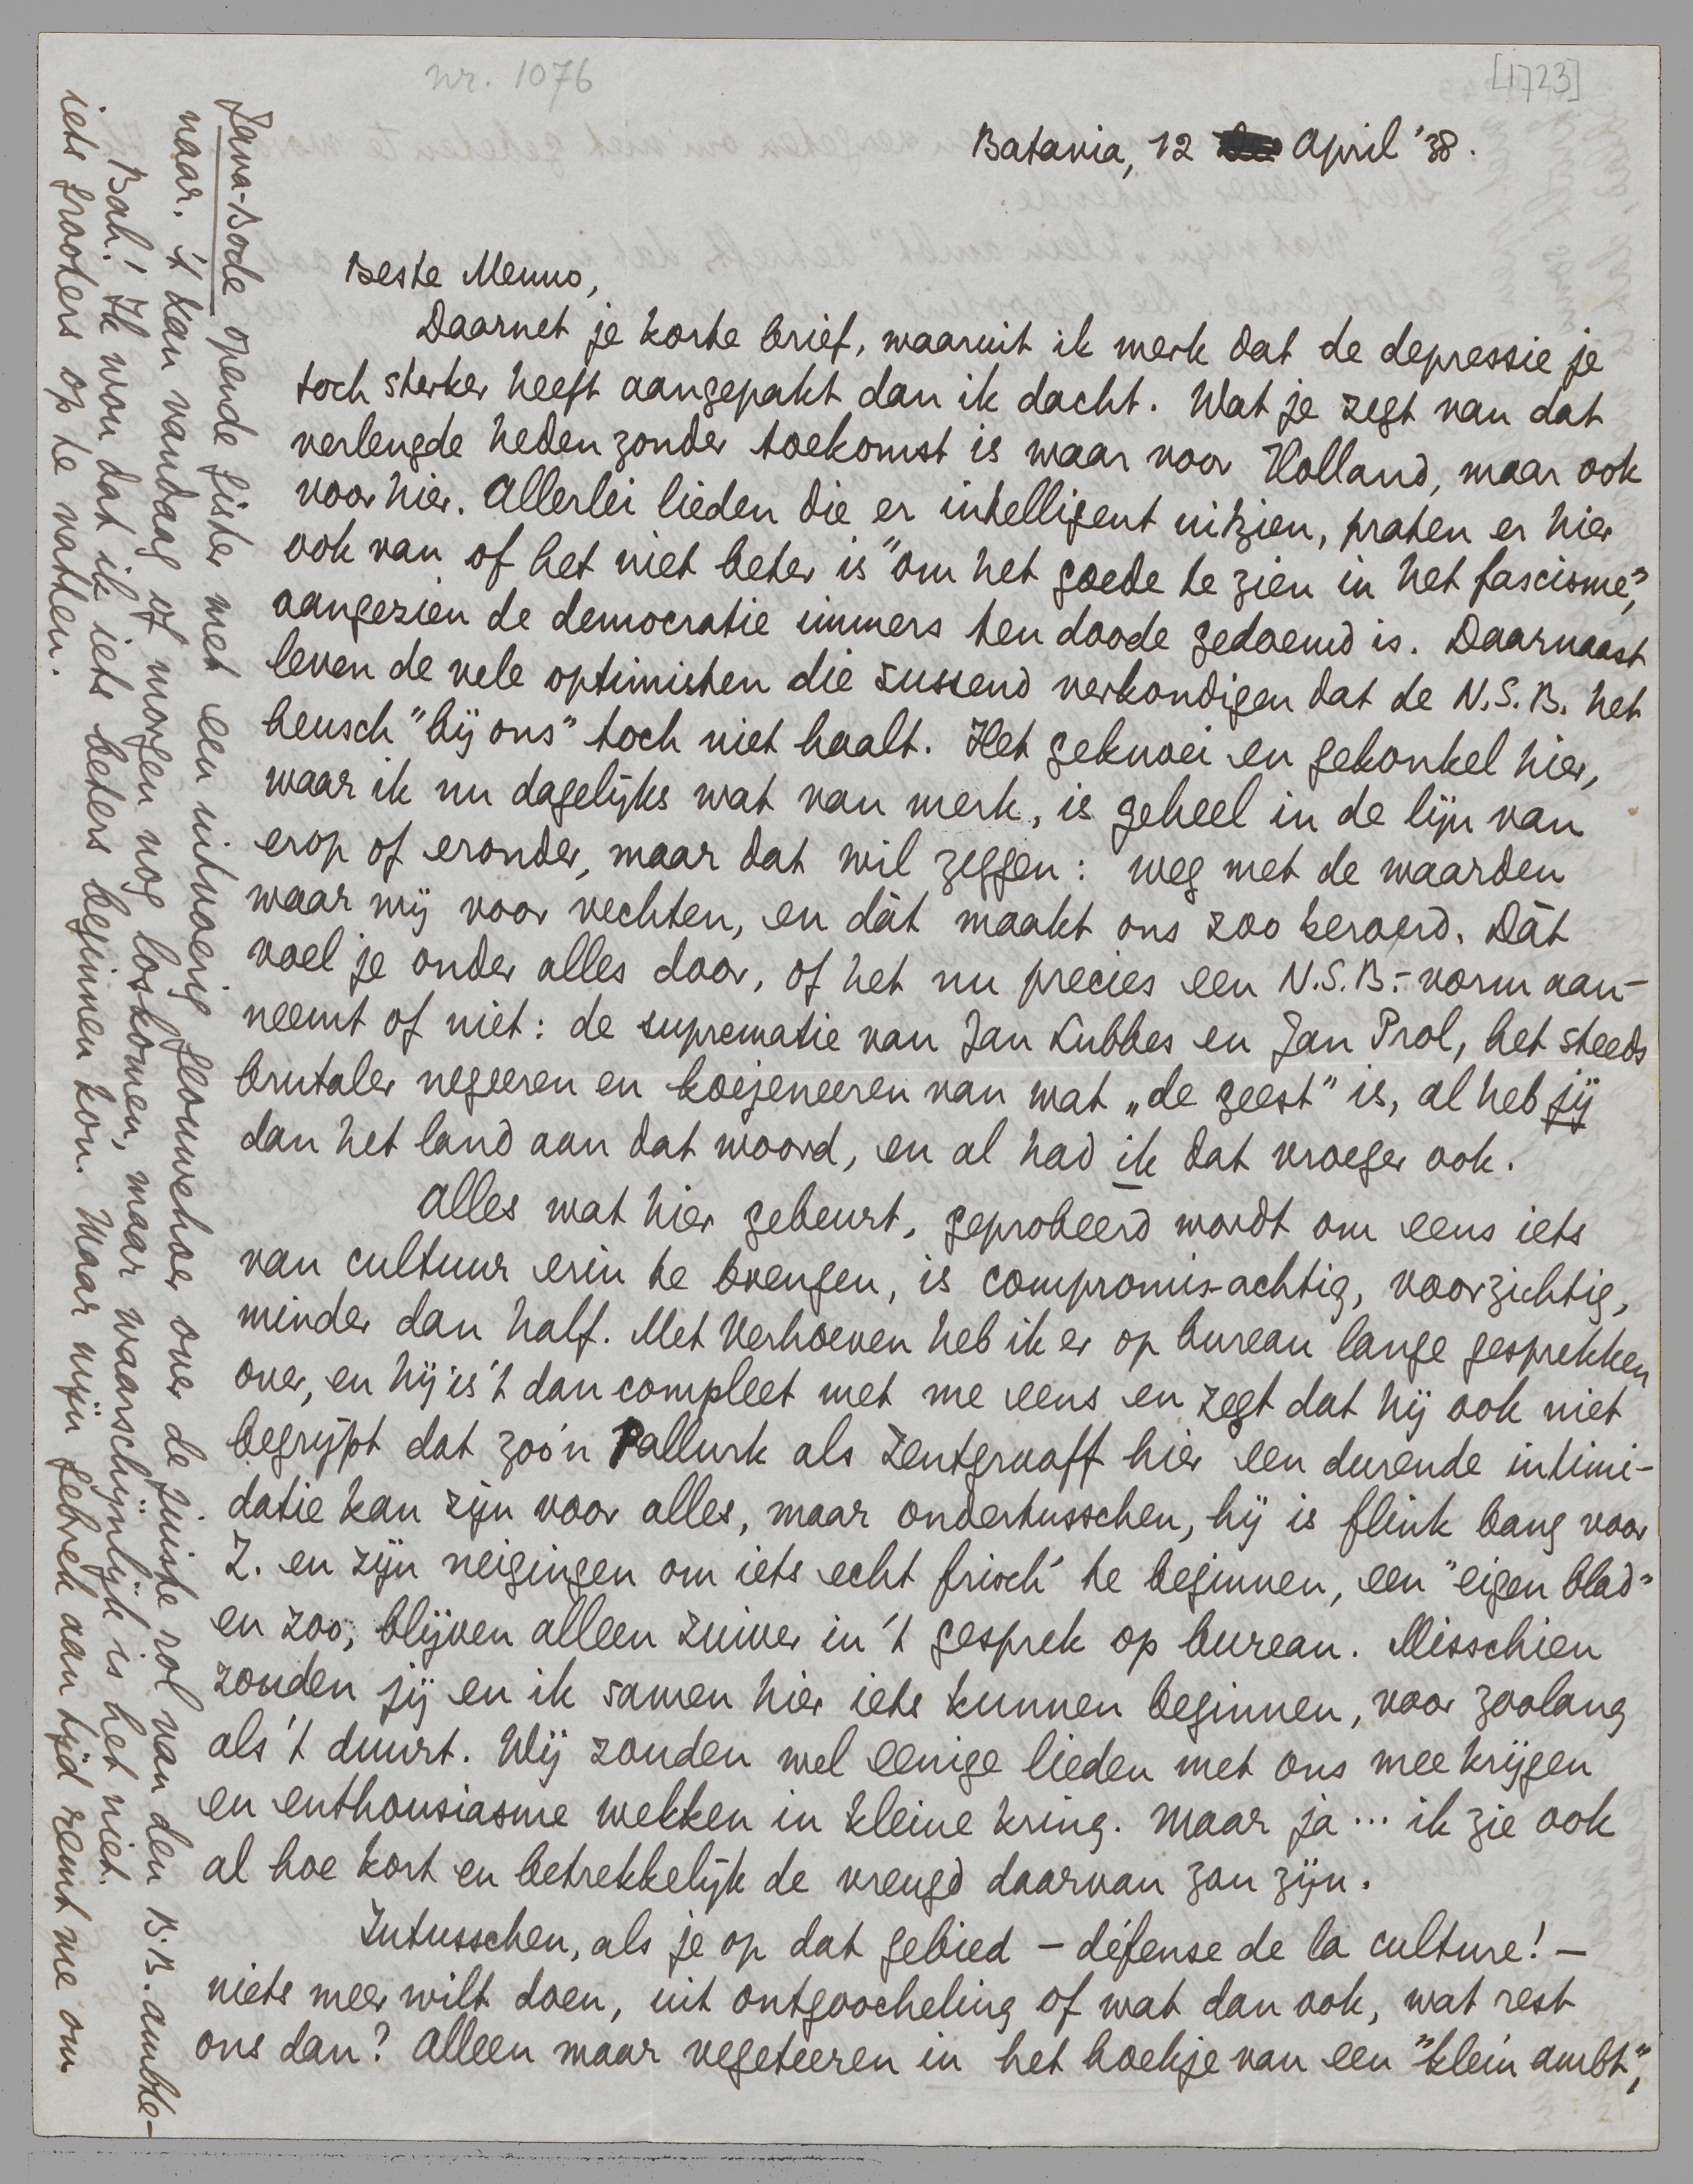 nr. 1076
[1723]
Batavia, 12 April '38.
Beste Menno,
Daarnet je korte brief, waaruit ik merk dat de depressie je
toch sterker heeft aangepakt dan ik dacht. Wat je zegt van dat
verlengde heden zonder toekomst is waar voor Holland, maar ook
voor hier. Allerlei lieden die er intelligent uitzien, praten er hier
ook van of het niet beter is "om het goede te zien in het fascisme",
aangezien de democratie immers ten doode gedoemd is. Daarnaast
leven de vele optimisten die sussend verkondigen dat de N.S.B. het
heusch "bij ons" toch niet haalt. Het geknoei en gekonkel hier,
waar ik nu dagelijks wat van merk, is geheel in de lijn van
erop of eronder, maar dat wil zeggen: weg met de waarden
waar wij voor vechten, en dàt maakt ons zoo beroerd. Dàt
voel je onder alles door, of het nu precies een N.S.B.-vorm aan-
neemt of niet: de suprematie van Jan Lubbes en Jan Prol, het steeds
brutaler negeeren en koejeneeren van wat „de geest" is, al heb jij
dan het land aan dat woord, en al had ik dat vroeger ook.
Alles wat hier gebeurt, geprobeerd wordt om eens iets
van cultuur erin te brengen, is compromis-achtig, voorzichtig,
minder dan half. Met Verhoeven heb ik er op bureau lange gesprekken
over, en hij is 't dan compleet met me eens en zegt dat hij ook niet
begrijpt dat zoo'n Pallurk als Zentgraaff hier een durende intimi-
datie kan zijn voor alles, maar ondertusschen, hij is flink bang voor
Z. en zijn neigingen om iets echt frisch te beginnen, een "eigen blad"
en zoo, blijven alleen zuiver in 't gesprek op bureau. Misschien
zouden jij en ik samen hier iets kunnen beginnen, voor zoolang
als 't duurt. Wij zouden wel eenige lieden met ons mee krijgen
en enthousiasme wekken in kleine kring. Maar ja... ik zie ook
al hoe kort en betrekkelijk de vreugd daarvan zou zijn.
Intusschen, als je op dat gebied – défense de la culture! –
niets meer wilt doen, uit ontgoocheling of wat dan ook, wat rest
ons dan? Alleen maar vegeteeren in het hoekje van een "klein ambt",
Java-Bode opende gister met een uitvoerig geouwehoer over de juiste rol van den B.B. ambte-
naar. 't Kan vandaag of morgen nog loskomen, maar waarschijnlijk is het niet.
Bah! Ik wou dat ik iets beters beginnen kon. Maar mijn gebrek aan tijd remt me om
iets grooters op te vatten.